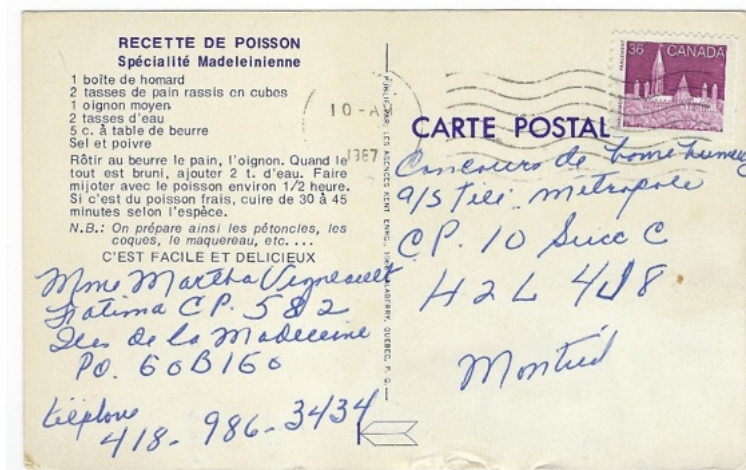 RECETTE DE POISSON
Spécialité Madeleinienne
1 boîte de homard
2 tasses de pain rassis en cubes
1 oignon moyen
2 tasses d'eau
5 c. à table de beurre
Sel et poivre
Rôtir au beurre le pain, l'oignon. Quand le
tout est bruni, ajouter 2 t. d'eau. Faire
mijoter avec le poisson environ 1/2 heure.
Si c'est du poisson frais, cuire de 30 à 45
minutes selon l'espèce.
N.B.: On prépare ainsi les pétoncles, les
coques, le maquereau, etc. ...
C'EST FACILE ET DELICIEUX
Mme Martha Vigneault
Fatima C.P. 582
Iles de la Madeleine
PO. GOB160
téléphone
418-986-3434
PUBLIE PAR: LES AGENCES KENT ENRG., QUEBEC, P. Q.
10-AM
1987
36 CANADA
CARTE POSTAL
Concours de bonne humeur
a/s Télé métropole
C.P. 10 Succ C
H2L 4J8
Montréal